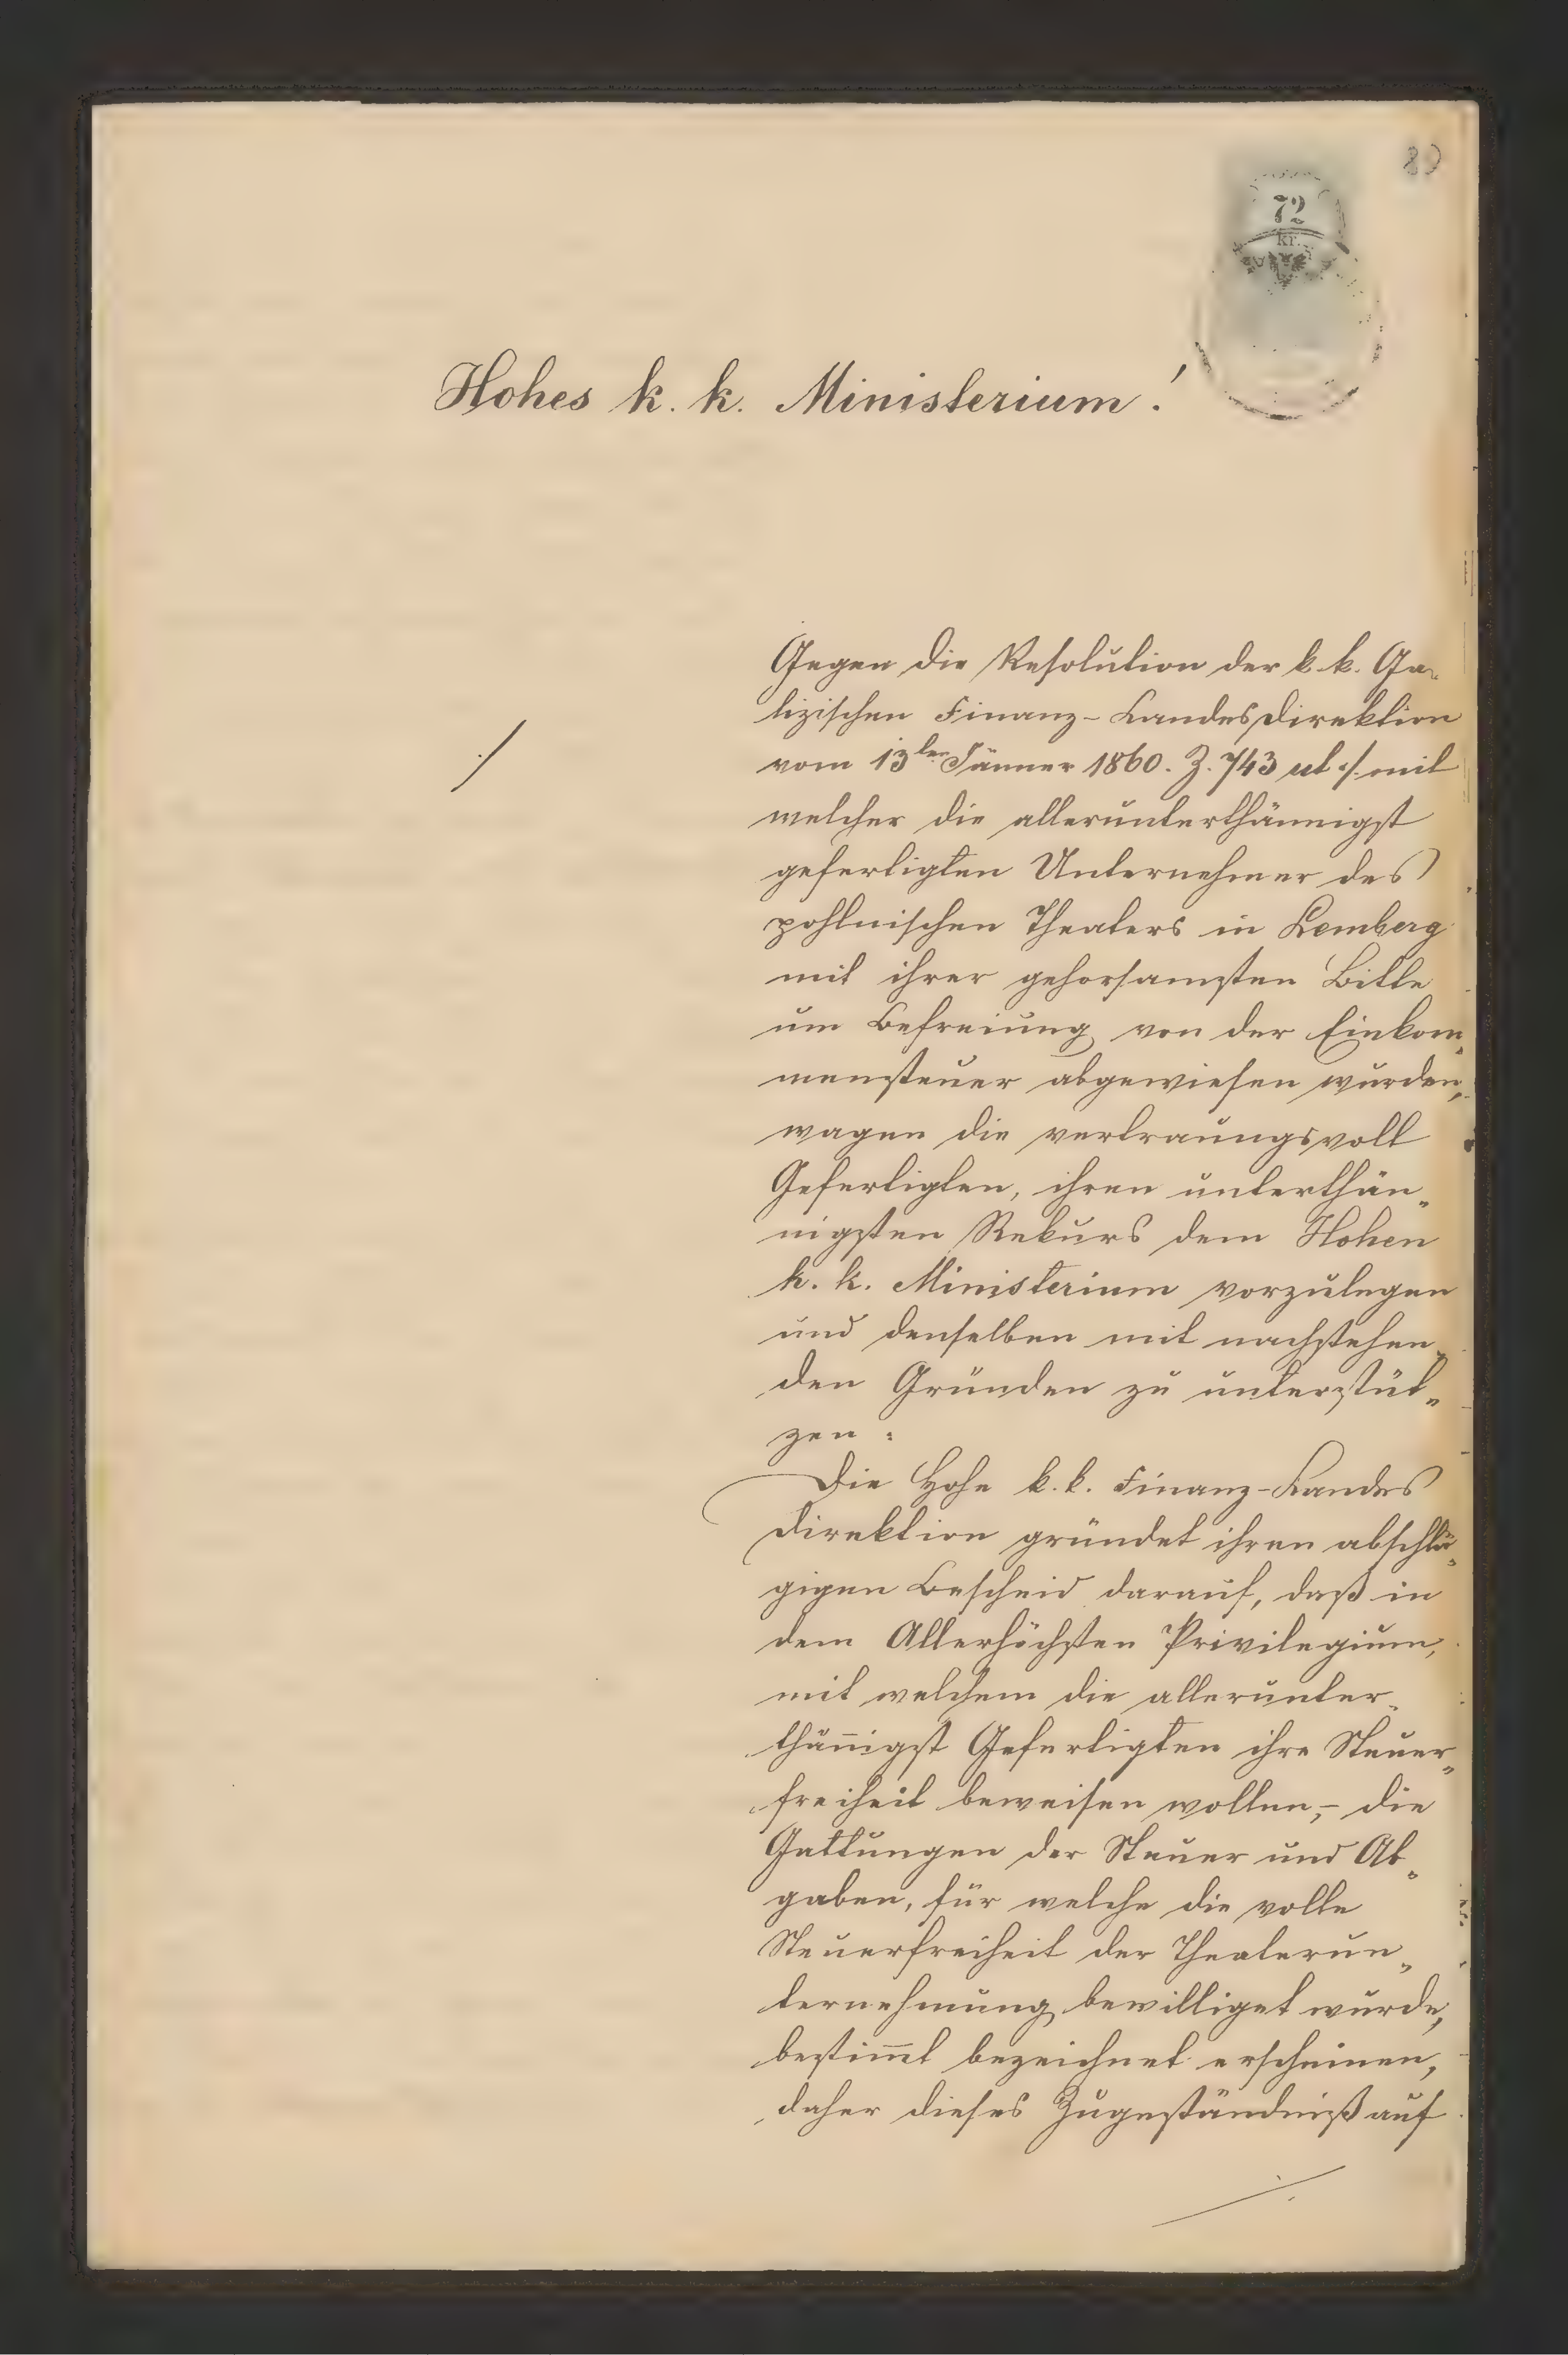 72
kr.
Hohes k. k. Ministerium!
Gegen die Resolution der k. k. Ga-
lizischen Finanz-Landesdirektion
vom 13ten Jänner 1860. Z. 743 ut ./. mit
welcher die allerunterthännigst
gefertigten Unternehmer des
pohlnischen Theaters in Lemberg
mit ihrer gehorsamsten Bitte
um Befreiung von der Einkom„
mensteuer abgewiesen wurden,
wagen die vertrauungsvoll
Gefertigten, ihren unterthän„
nigsten Rekurs dem Hohen
k. k. Ministerium vorzulegen
und denselben mit nachstehen„
den Gründen zu unterstüt„
zen:
Die Hohe k. k. Finanz-Landes
direktion gründet ihren abschlä„
gigen Bescheid darauf, daß in
dem Allerhöchsten Privilegium,
mit welchem die allerunter„
thän̅igst Gefertigten ihre Steuer„
freiheit beweisen wollen, – die
Gattungen der Steuer und Ab„
gaben, für welche die volle
Steuerfreiheit der Theaterun„
ternehmung bewilliget wurde,
bestim̅t bezeichnet erscheinen,
daher dieses Zugeständniß auf
./.